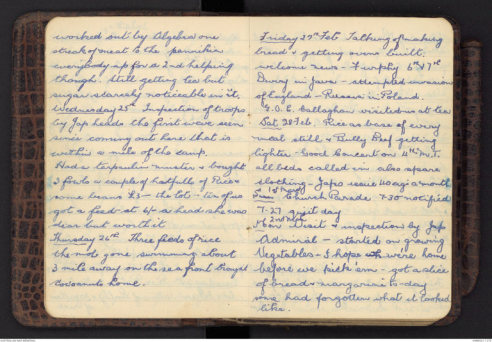 worked out by Algebra one
streak of meat to the pannikin
everybody up for a 2nd helping
though. Still getting tea but
sugar scarcely noticeable in it.
Wednesday 25th Inspection of troops
by Jap heads the first we've seen
since coming out here that is
within a mile of the camp.
Had a tarpaulin muster & bought
2 fowls a couple of hatfulls of Rice &
some beans £3 - the lot - ten of us
got a feed at 6/- a head she was
dear but worth it
Thursday 26th Three feeds of rice
the mob gone swimming about
3 mile away on the sea front
cocoanuts home.
Friday 27th Feb Talking of making
bread & getting ovens built;
welcome news - Furphy 6th & 7th
Divvy in Java - attempted invasion
of England - Russia in Poland.
G.O.C. Callaghan visited us at tea
Sat. 28 Feb. Rice as base of every
meal still & Bully Beef getting
lighter - Good Concert on
all beds called in also spare
clothing - Japs issue 10 a month
Church Parade 7-30 notified
7-27 quit day
Mon 2nd Mar Visit & inspection by Jap
Admiral - started on growing
Vegetables - I hope we're home
before we pick 'em - got a slice
of bread & margarine to-day
one had forgotten what it looked
like.